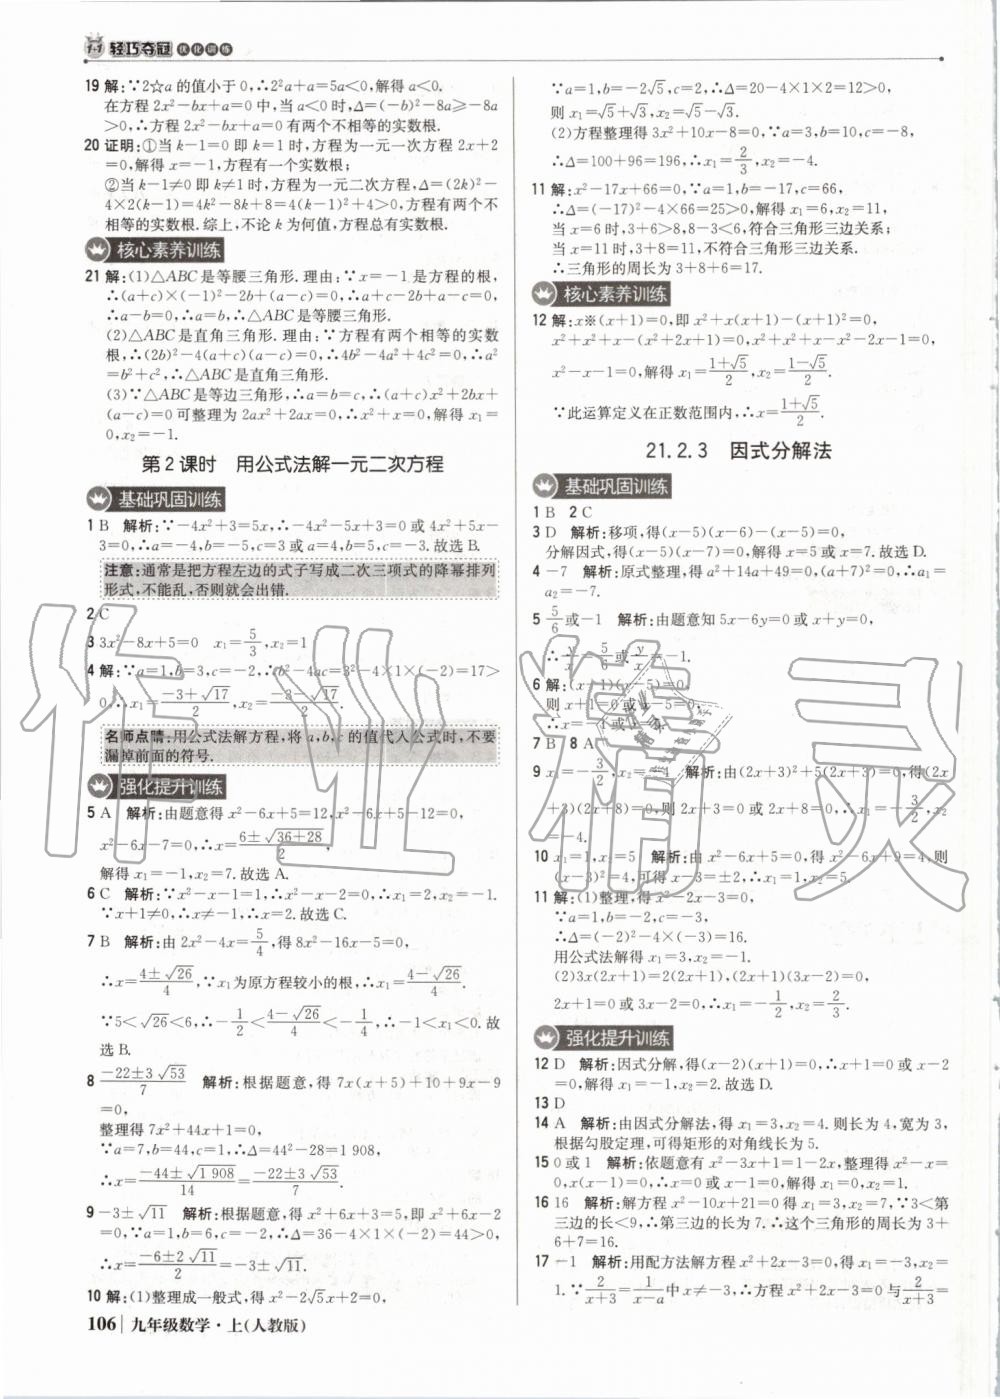 1+1 轻巧夺冠 优化训练
19 解:∵2☆a 的值小于 0,∴2²a+a=5a<0,解得 a<0.
在方程 2x²-bx+a=0 中,当 a<0 时,Δ=(-b)²-8a≥-8a
>0,∴方程 2x²-bx+a=0 有两个不相等的实数根.
20 证明:①当 k-1=0 即 k=1 时,方程为一元一次方程 2x+2
=0,解得 x=-1,方程有一个实数根;
②当 k-1≠0 即 k≠1 时,方程为一元二次方程,Δ=(2k)²-
4×2(k-1)=4k²-8k+8=4(k-1)²+4>0,方程有两个不
相等的实数根.综上,不论 k 为何值,方程总有实数根.
核心素养训练
21 解:(1)△ABC 是等腰三角形.理由:∵x=-1 是方程的根,
∴(a+c)×(-1)²-2b+(a-c)=0,∴a+c-2b+a-c=0,
∴a-b=0,∴a=b,∴△ABC 是等腰三角形.
(2)△ABC 是直角三角形.理由:∵方程有两个相等的实数
根,∴(2b)²-4(a+c)(a-c)=0,∴4b²-4a²+4c²=0,∴a²
=b²+c²,∴△ABC 是直角三角形.
(3)∵△ABC 是等边三角形,∴a=b=c,∴(a+c)x²+2bx+
(a-c)=0 可整理为 2ax²+2ax=0,∴x²+x=0,解得 x₁=
0,x₂=-1.
第 2 课时 用公式法解一元二次方程
基础巩固训练
1 B 解析:∵-4x²+3=5x,∴-4x²-5x+3=0 或 4x²+5x-
3=0,∴a=-4,b=-5,c=3 或 a=4,b=5,c=-3.故选 B.
注意:通常是把方程左边的式子写成二次三项式的降幂排列
形式,不能乱,否则就会出错.
2 C
3 3x²-8x+5=0 x₁=5/3,x₂=1
4 解:∵a=1,b=3,c=-2,∴b²-4ac=3²-4×1×(-2)=17>
0,∴x₁=(-3+√17)/2,x₂=(-3-√17)/2.
名师点睛:用公式法解方程,将 a,b,c 的值代入公式时,不要
漏掉前面的符号.
强化提升训练
5 A 解析:由题意得 x²-6x+5=12,x²-6x+5-12=0,
x²-6x-7=0,∴x=(6±√(36+28))/2,
解得 x₁=-1,x₂=7.故选 A.
6 C 解析:∵x²-x-1=1,∴x²-x-2=0,∴x₁=2,x₂=-1.
∵x+1≠0,∴x≠-1,∴x=2.故选 C.
7 B 解析:由 2x²-4x=5/4,得 8x²-16x-5=0,
∴x=(4±√26)/4,∵x₁为原方程较小的根,∴x₁=(4-√26)/4.
∵5<√26<6,∴-1/2<(4-√26)/4<-1/4,∴-1<x₁<0.故
选 B.
8 (-22±3√53)/7 解析:根据题意,得 7x(x+5)+10+9x-9
=0,
整理得 7x²+44x+1=0,
∵a=7,b=44,c=1,∴Δ=44²-28=1 908,
∴x=(-44±√1 908)/14=(-22±3√53)/7.
9 -3±√11 解析:根据题意,得 x²+6x+3=5,即 x²+6x-2
=0,∵a=1,b=6,c=-2,∴Δ=36-4×1×(-2)=44>0,
∴x=(-6±2√11)/2=-3±√11.
10 解:(1)整理成一般式,得 x²-2√5x+2=0,
106 九年级数学·上(人教版)
∵a=1,b=-2√5,c=2,∴Δ=20-4×1×2=12>0,
则 x₁=√5+√3,x₂=√5-√3.
(2)方程整理得 3x²+10x-8=0,∵a=3,b=10,c=-8,
∴Δ=100+96=196,∴x₁=2/3,x₂=-4.
11 解:x²-17x+66=0,∵a=1,b=-17,c=66,
∴Δ=(-17)²-4×66=25>0,解得 x₁=6,x₂=11,
当 x=6 时,3+6>8,8-3<6,符合三角形三边关系;
当 x=11 时,3+8=11,不符合三角形三边关系.
∴三角形的周长为 3+8+6=17.
核心素养训练
12 解:x※(x+1)=0,即 x²+x(x+1)-(x+1)²=0,
x²+x²+x-(x²+2x+1)=0,x²+x²+x-x²-2x-1=0,
x²-x-1=0,解得 x₁=(1+√5)/2,x₂=(1-√5)/2.
∵此运算定义在正数范围内,∴x=(1+√5)/2.
21.2.3 因式分解法
基础巩固训练
1 B 2 C
3 D 解析:移项,得(x-5)(x-6)-(x-5)=0,
分解因式,得(x-5)(x-7)=0,解得 x=5 或 x=7.故选 D.
4 -7 解析:原式整理,得 a²+14a+49=0,(a+7)²=0,∴a₁=
a₂=-7.
5 5/6或-1 解析:由题意知 5x-6y=0 或 x+y=0,
∴y/x=5/6或y/x=-1.
6 解:(x+1)(x-5)=0,
则 x+1=0 或 x-5=0,
∴x=-1 或 x=5.
7 B 8 A
9 x₁=-3/2,x₂=-4 解析:由(2x+3)²+5(2x+3)=0,得(2x
+3)(2x+8)=0,则 2x+3=0 或 2x+8=0,∴x₁=-3/2,x₂
=-4.
10 x₁=1,x₂=5 解析:由 x²-6x+5=0,得 x²-6x+9=4,则
(x-3)²=4,可得 x-3=±2,∴x₁=1,x₂=5.
11 解:(1)整理,得 x²-2x-3=0,
∵a=1,b=-2,c=-3,
∴Δ=(-2)²-4×(-3)=16.
用公式法解得 x₁=3,x₂=-1.
(2)3x(2x+1)=2(2x+1),(2x+1)(3x-2)=0,
2x+1=0 或 3x-2=0,∴x₁=-1/2,x₂=2/3.
强化提升训练
12 D 解析:因式分解,得(x-2)(x+1)=0,∴x+1=0 或 x-2
=0,解得 x₁=-1,x₂=2.故选 D.
13 D
14 A 解析:由因式分解法,得 x₁=3,x₂=4.则长为 4,宽为 3,
根据勾股定理,可得矩形的对角线长为 5.
15 0 或 1 解析:依题意有 x²-3x+1=1-2x,整理得 x²-x=
0,x(x-1)=0,∴x=0 或 x-1=0,解得 x₁=0,x₂=1.
16 16 解析:解方程 x²-10x+21=0 得 x₁=3,x₂=7,∵3<第
三边的长<9,∴第三边的长为 7.∴这个三角形的周长为 3+
6+7=16.
17 -1 解析:用配方法解方程 x²+2x-3=0,得 x₁=-3,x₂=
1.∵2/(x+3)=1/(x-a)中 x≠-3,∴方程 x²+2x-3=0 与2/(x+3)=
作业精灵